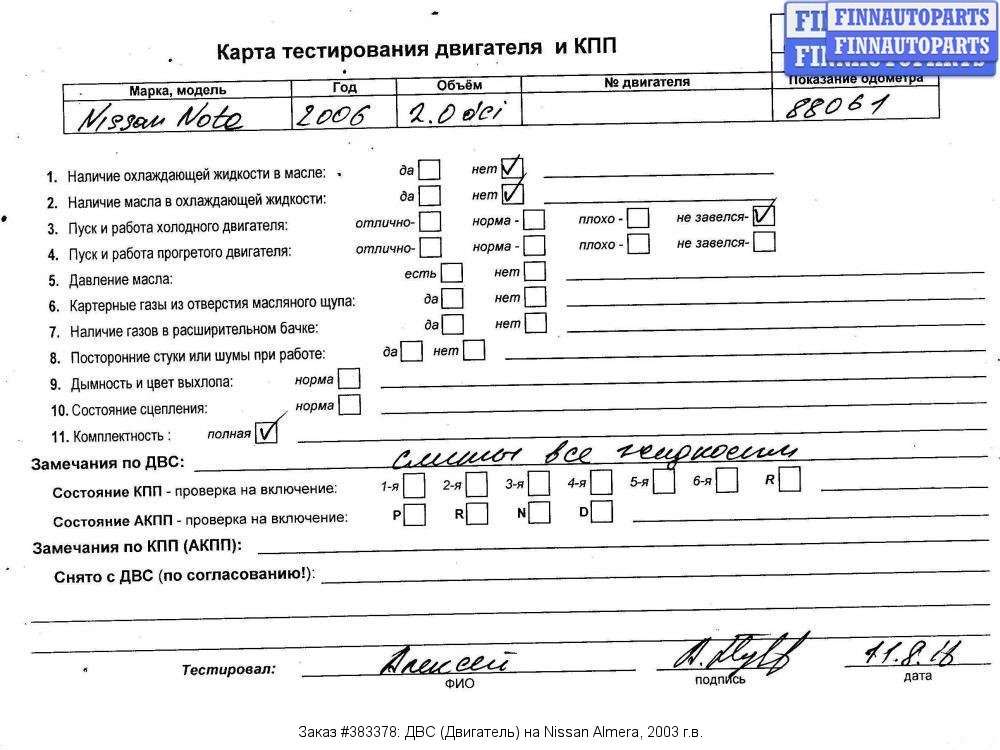 FINNAUTOPARTS
FINNAUTOPARTS
Карта тестирования двигателя и КПП
Марка, модель Год Объём № двигателя Показание одометра
Nissan Note 2006 2.0 dci 88061
1. Наличие охлаждающей жидкости в масле: да нет ✓
2. Наличие масла в охлаждающей жидкости: да нет ✓
3. Пуск и работа холодного двигателя: отлично- норма - плохо - не завелся- ✓
4. Пуск и работа прогретого двигателя: отлично- норма - плохо - не завелся-
5. Давление масла: есть нет
6. Картерные газы из отверстия масляного щупа: да нет
7. Наличие газов в расширительном бачке: да нет
8. Посторонние стуки или шумы при работе: да нет
9. Дымность и цвет выхлопа: норма
10. Состояние сцепления: норма
11. Комплектность : полная ✓
Замечания по ДВС: слиты все жидкости
Состояние КПП - проверка на включение: 1-я 2-я 3-я 4-я 5-я 6-я R
Состояние АКПП - проверка на включение: P R N D
Замечания по КПП (АКПП):
Снято с ДВС (по согласованию!):
Тестировал: Алексей
ФИО подпись дата
Заказ #383378: ДВС (Двигатель) на Nissan Almera, 2003 г.в.